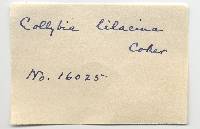 Collybia lilacina
Coker
No. 16025